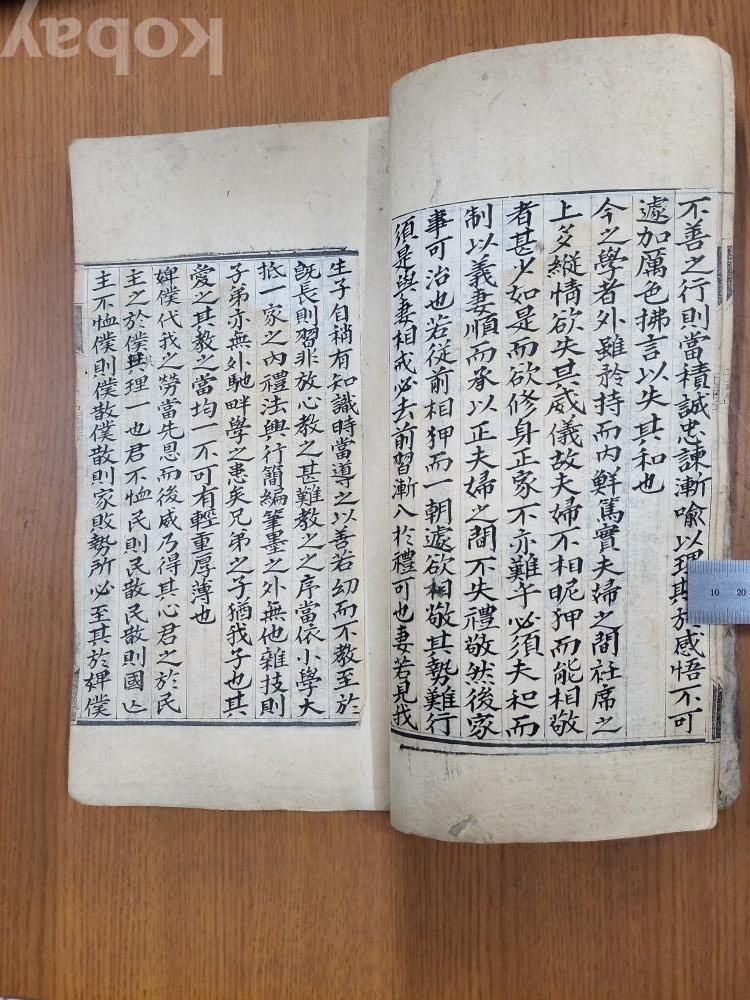 kobay
不善之行則當積誠忠諫漸喩以理其於感悟不可
遽加厲色拂言以失其和也
今之學者外雖矜持而內鮮篤實夫婦之間衽席之
上多縱情欲失其威儀故夫婦不相昵狎而能相敬
者甚少如是而欲修身正家不亦難乎必須夫和而
制以義妻順而承以正夫婦之間不失禮敬然後家
事可治也若從前相狎而一朝遽欲相敬其勢難行
須是與妻相戒必去前習漸入於禮可也妻若見我
生子自稍有知識時當導之以善若幼而不教至於
旣長則習非放心教之甚難教之之序當依小學大
抵一家之內禮法興行簡編筆墨之外無他雜技則
子弟亦無外馳畔學之患矣兄弟之子猶我子也其
愛之其教之當均一不可有輕重厚薄也
婢僕代我之勞當先恩而後威乃得其心君之於民
主之於僕其理一也君不恤民則民散民散則國亡
主不恤僕則僕散僕散則家敗勢所必至其於婢僕
10 20